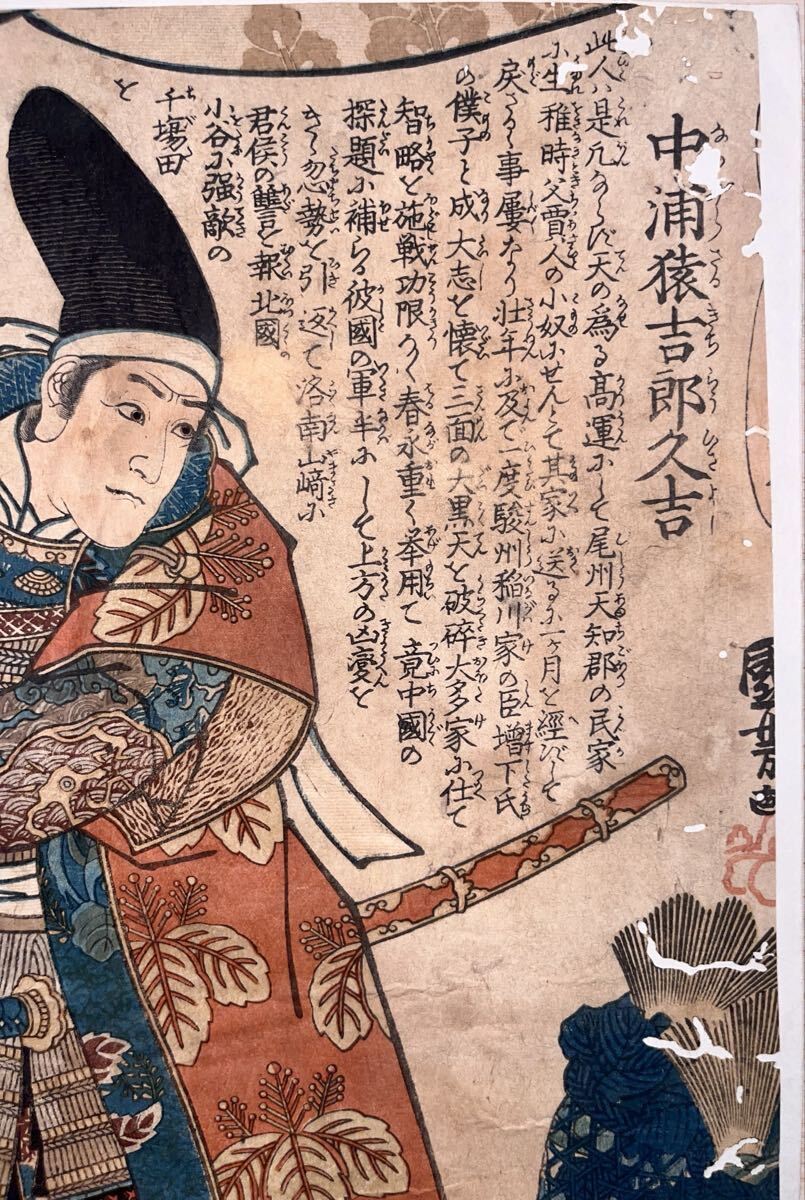 中浦猿吉郎久吉
此人ハ是凢ならず天の爲る高運にして尾州天知郡の民家
に生稚時父賈人の小奴にせんとて其家に送るに一ケ月を經ずして
戻さるゝ事屢なり壮年に及て一度駿州稲川家の臣増下氏
の僕子と成大志を懐て三面の大黒天を破碎大多家に仕て
智略を施戦功限なく春永重く举用て竟中國の
探題に補らる彼國の軍半にして上方の凶變を
きゝ忽勢を引返て洛南山﨑に
君侯の讐を報北國
小谷に强敵の
千塲田
を
國芳画